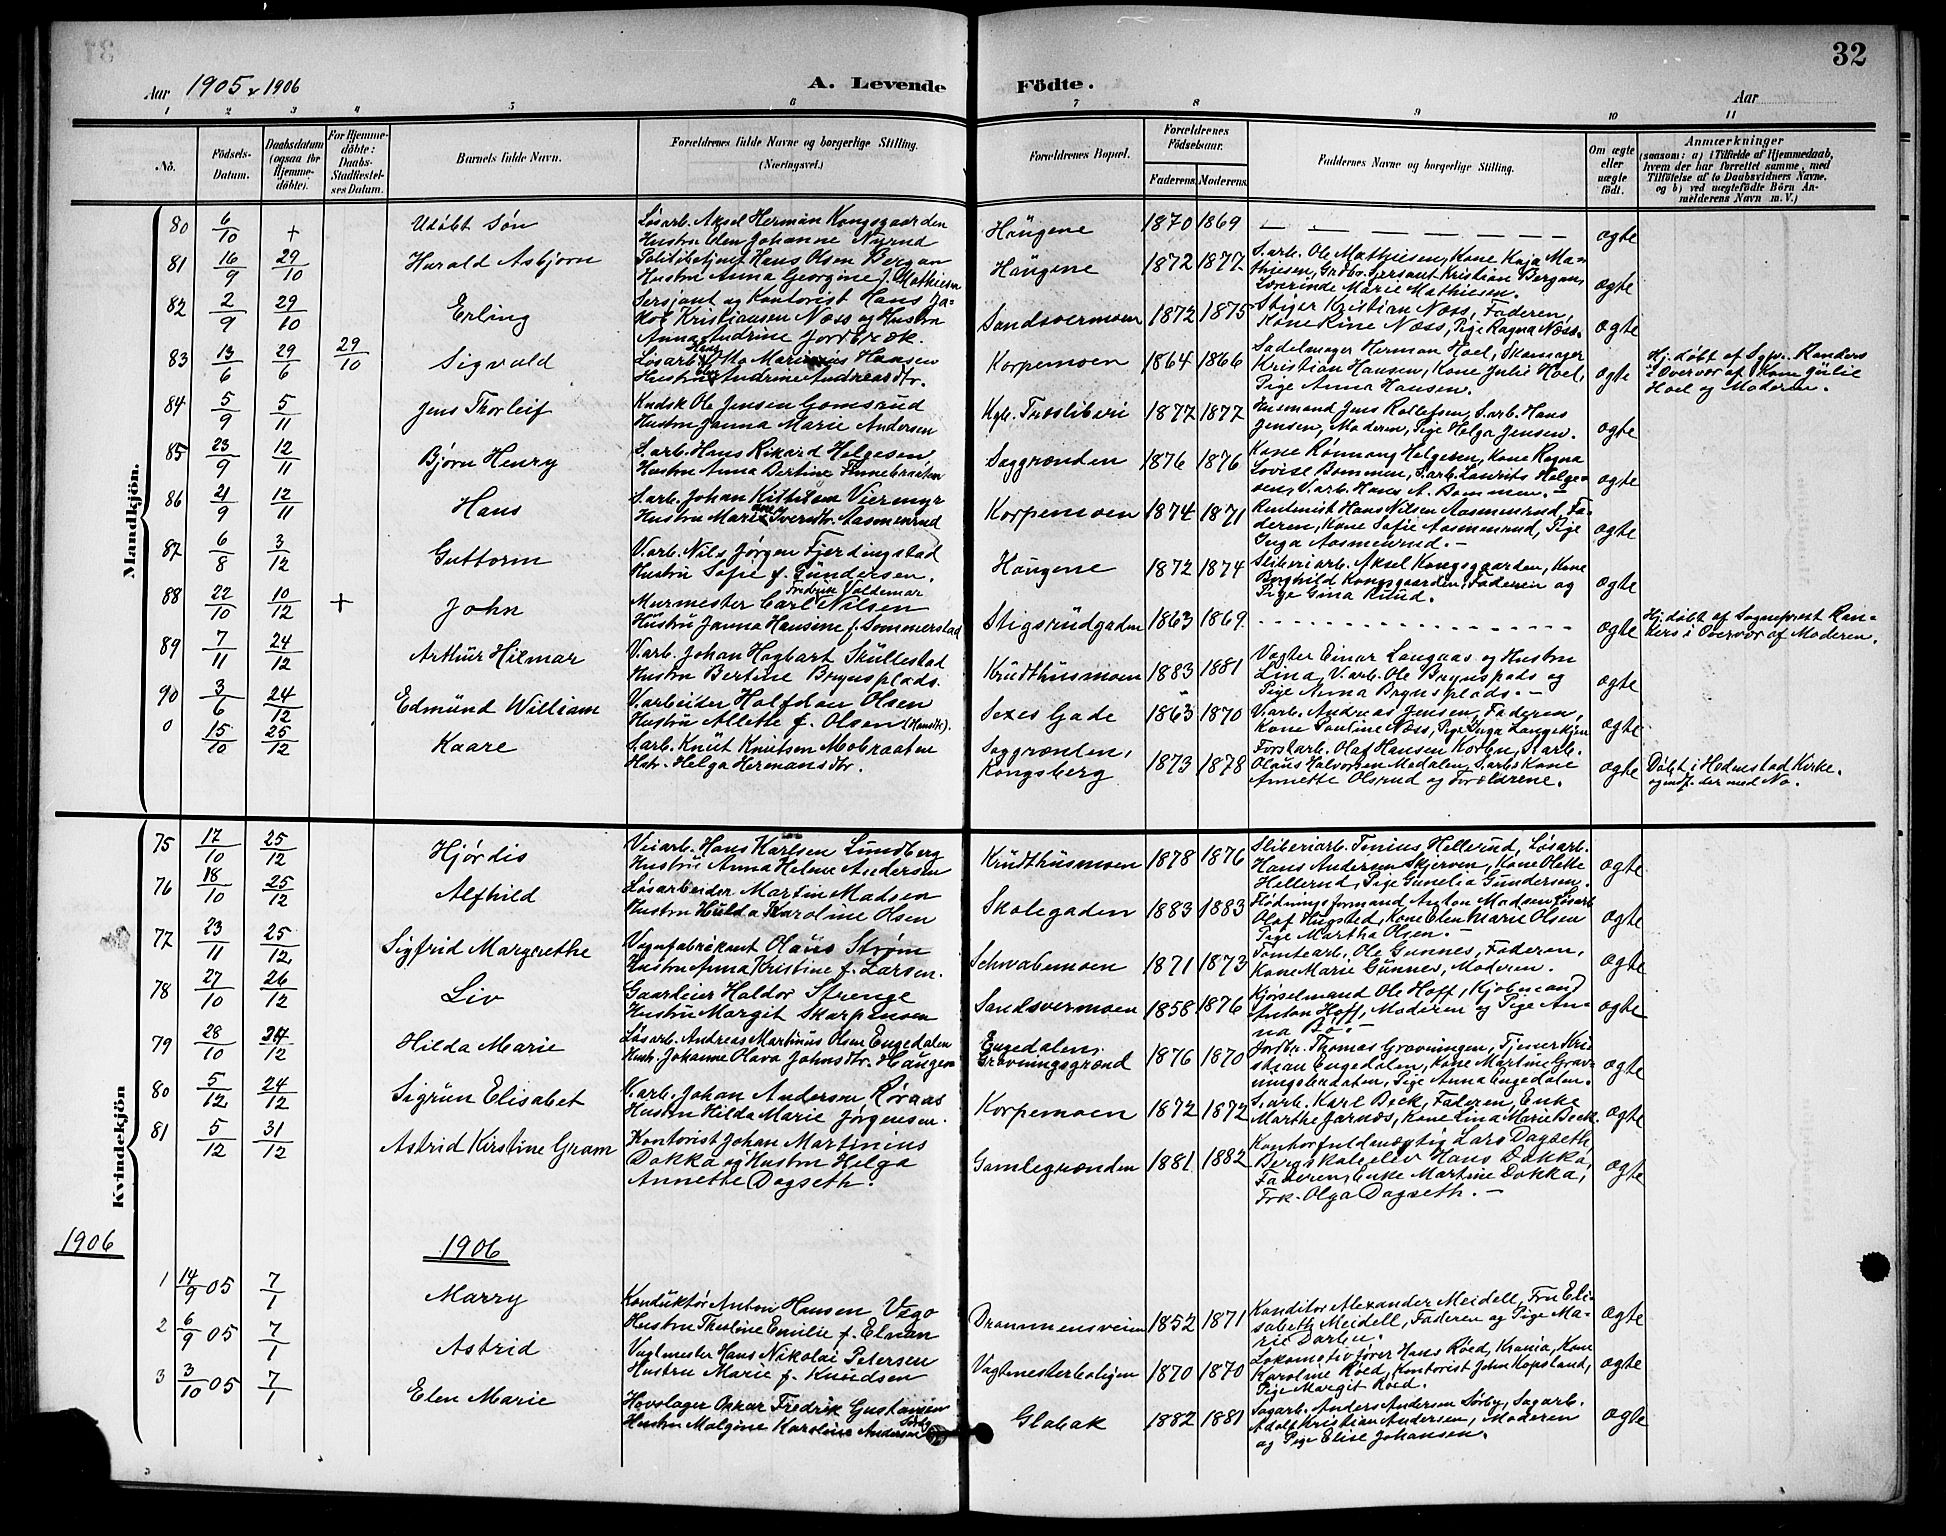 32
Aar 1905 & 1906
A. Levende Födte.
Aar
1 2 3 4 5 6 7 8 9 10 11
No.
Födsels-Datum.
Daabsdatum (ogsaa for Hjemmedöbte).
For Hjemmedöbte: Daabs-Stadfæstelses Datum.
Barnets fulde Navn.
Forældrenes fulde Navne og borgerlige Stilling. (Næringsvei.)
Forældrenes Bopæl.
Forældrenes Födselsaar.
Faderens. Moderens.
Faddernes Navne og borgerlige Stilling.
Om ægte eller uægte födt.
Anmærkninger
(saasom: a) i Tilfælde af Hjemmedaab, hvem der har forrettet samme, med Tilföielse af to Daabsvidners Navne, og b) ved uægtefödte Börn Anmelderens Navn m. V.)
Mandkjön.
80 6/10 + Udøbt Søn
Løsarb. Aksel Herman Kongsgaarden
Hustru Elen Johanne Nyrud
Haugene 1870 1869 — ægte
81 16/9 29/10 Harald Asbjørn
Politibetjent Hans Olsen Bergan
Hustru Anna Georgine f. Mathiesen
Haugene 1872 1877
S.arb. Ole Mathiesen, Kone Kaja Ma-
thiesen, Grdbr. Sersant Kristian Bergan,
Lærerinde Marie Mathiesen. ægte
82 2/9 29/10 Erling
Sersjant og Kontorist Hans Ja-
kob Kristiansen Næss og Hustru
Anna Andrine Jordbræk.
Sandsværmoen 1872 1875
Stiger Kristian Næss, Faderen,
Kone Rine Næss, Pige Ragna Næss. ægte
83 13/6 29/6 29/10 Sigvald
Løsarb. Otto Marinius Hansen
Hustru Andrine Andreasdtr.
Korpemoen 1864 1866
Sadelmager Herman Hoel, Skomager
Kristian Hansen, Kone Julie Hoel,
Pige Anna Hansen. ægte
Hj. døbt af Sgpr. Randers
i Overvær af Kone Julie
Hoel og Moderen.
84 5/9 5/11 Jens Thorleif
Kudsk Ole Jensen Gomsrud
Hustru Janna Marie Andersen
Kgb. Træsliberi 1877 1877
Husmand Jens Rollefsen, S.arb. Hans
Jensen, Moderen, Pige Helga Jensen. ægte
85 23/9 12/11 Bjørn Henry
S.arb. Hans Rikard Helgesen
Hustru Anna Bertine Finnebraaten
Saggrænden 1876 1876
Kone Rønnaug Helgesen, Kone Ragna
Lovise Bommen, S.arb. Laurits Helge-
sen, V.arb. Hans A. Bommen. ægte
86 21/9 12/11 Hans
S.arb. Johan Kittilsen Viermyr
Hustru Maren Iversdtr. Aasmenrud
Korpemoen 1874 1871
Rentenist Hans Nilsen Aasmenrud, Fa-
deren, Kone Sofie Aasmenrud, Pige
Inga Aasmenrud. ægte
87 6/8 3/12 Guttorm
V.arb. Nils Jørgen Fjerdingstad
Hustru Sofie f. Gundersen.
Haugene 1872 1874
Sliberiarb. Aksel Kongsgaarden, Kone
Borghild Kongsgaarden, Faderen og
Pige Gina Ruud. ægte
88 22/10 10/12 + John
Fredrik Valdemar
Murmester Carl Nilsen
Hustru Janna Hansine f. Sommerstad
Stigsrudgaden 1863 1869 ægte
Hj. døbt af Sogneprest Ran-
ders i Overvær af Moderen.
89 7/11 24/12 Arthur Hilmar
V.arb. Johan Hagbart Skullestad
Hustru Bertine Brynsplads.
Krudthusmoen 1883 1881
Vogter Einar Langaas og Hustru
Lina, V.arb. Ole Brynsplads og
Pige Anna Brynsplads. ægte
90 3/6 24/12 Edmund William
V.arbeider Halfdan Olsen
Hustru Allette f. Olsen
Sexes Gade 1863 1870
V.arb. Andreas Jensen, Faderen,
Kone Pauline Næss, Pige Inga Langekjen ægte
0 15/10 25/12 Kaare
S.arb. Knut Knutsen Mobraaten
Hstr. Helga Hermansdtr.
Saggrænden,
Kongsberg 1873 1878
Forstarb. Olaf Hansen Korbu, S.arb.
Olaus Halvorsen Medalen, S.arbs Kone
Annette Olsrud og Forældrene. ægte
Døbt i Hedenstad Kirke.
og indf. der med No.
Kvindekjön
75 17/10 25/12 Hjørdis
Veiarb. Hans Karlsen Lundberg
Hustru Anna Helene Andersen
Krudthusmoen 1878 1876
Sliberiarb. Tinius Hellerud, Løsarb.
Hans Andersen Skjerven, Kone Olette
Hellerud, Pige Gunelia Gundersen. ægte
76 18/10 25/12 Alfhild
Løsarbeider Martin Madsen
Hustru Hulda Karoline Olsen
Skolegaden 1883 1883
Flødningsformand Anton Madsen, Løsarb.
Olaf Hugsted, Kone Elen Marie Olsen
Pige Martha Olsen. ægte
77 23/11 25/12 Sigfrid Margrethe
Vognfabrikant Olaus Strøm
Hustru Anna Kristine f. Larsen.
Schwabemoen 1871 1873
Tomtearb. Ole Gunnes, Faderen,
Kone Marie Gunnes, Moderen. ægte
78 27/10 26/12 Liv
Gaardeier Haldor Strenge
Hustru Margit Skarpemoen
Sandsværmoen 1858 1876
Kjørselmand Ole Hoff, Kjøbmand
Anton Hoff, Moderen og Pige An-
na Bø. ægte
79 28/10 24/12 Hilda Marie
Løsarb. Andreas Martinus Olsen Engedalen
Hustr. Johanne Olava Johnsdtr. Haugen
Engedalen,
Gravningsgrænd 1876 1870
Jordbr. Thomas Gravningen, Tjener Kri-
stian Engedalen, Kone Martine Grav-
ningsbraaten, Pige Anna Engedalen. ægte
80 5/12 24/12 Sigrun Elisabet
V.arb. Johan Andersen Røraas
Hustru Hilda Marie Jørgensen.
Korpemoen 1872 1872
S.arb. Karl Beck, Faderen, Enke
Marthe Jarnæs, Kone Lina Marie Beck. ægte
81 5/12 31/12 Astrid Kirstine Gram
Kontorist Johan Martinius
Dokka og Hustru Helga
Annette Dagseth.
Gamlegrænden 1881 1882
Kontorfuldmægtig Lars Dagseth,
Bergskoleelev Hans Dokka,
Faderen, Enke Martine Dokka,
Frk. Olga Dagseth. ægte
1906
1906
1 14/9 05 7/1 Marry
Konduktør Anton Hansen Vego
Hustru Theoline Emilie f. Elman
Drammensveien 1852 1871
Konditor Alexander Meidell, Fru Eli-
sabeth Meidell, Faderen og Pige Ma-
rie Darbu. ægte
2 6/9 05 7/1 Astrid
Vagtmester Hans Nikolai Petersen
Hustru Marie f. Knudsen
Vagtmesterboligen 1870 1870
Lokomotivfører Hans Røed, Krania, Kone
Karoline Røed, Kontorist John Kopsland,
Pige Margit Røed. ægte
3 3/10 05 7/1 Elen Marie
Hovslager Oskar Fredrik Gustavsen
Hustru Malgine Karoline Andersen Sørby
Glabak 1882 1881
Sagarb. Anders Andersen Sørby, Sagarb.
Adolf Kristian Andersen, Moderen
og Pige Elise Johansen. ægte